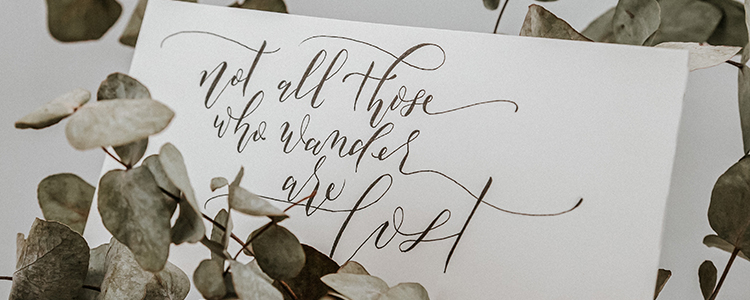 not all those
who wander
are lost